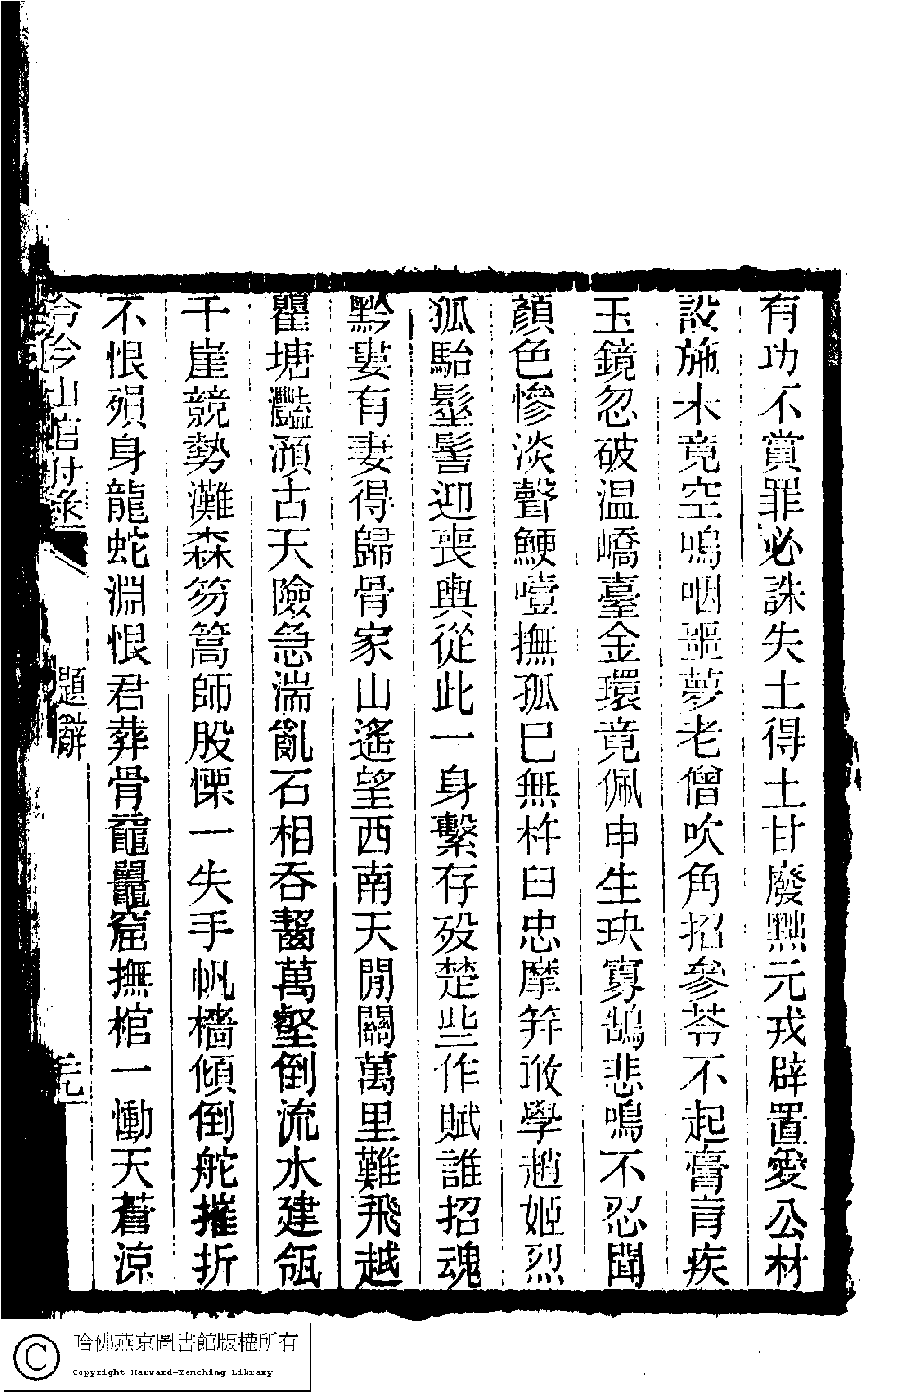 有功不賞罪必誅失土得土甘廢黜元戎辟置愛公材
設施未竟空嗚咽噩夢老僧吹角招參苓不起膏肓疾
玉鏡忽破温嶠臺金環竟佩申生玦寡鵠悲鳴不忍聞
顏色慘淡聲鯁噎撫孤已無杵臼忠摩笄敢學趙姬烈
狐駘髽髻迎喪輿從此一身繫存歿楚些作賦誰招魂
黔婁有妻得歸骨家山遙望西南天間關萬里難飛越
瞿塘灩澦古天險急湍亂石相吞齧萬壑倒流水建瓴
千崖競勢灘森笏篙師股慄一失手帆檣傾倒舵摧折
不恨殞身龍蛇淵恨君葬骨黿鼉窟撫棺一慟天蒼涼
題辭
哈佛燕京圖書館版權所有
Copyright Harvard-Yenching Library